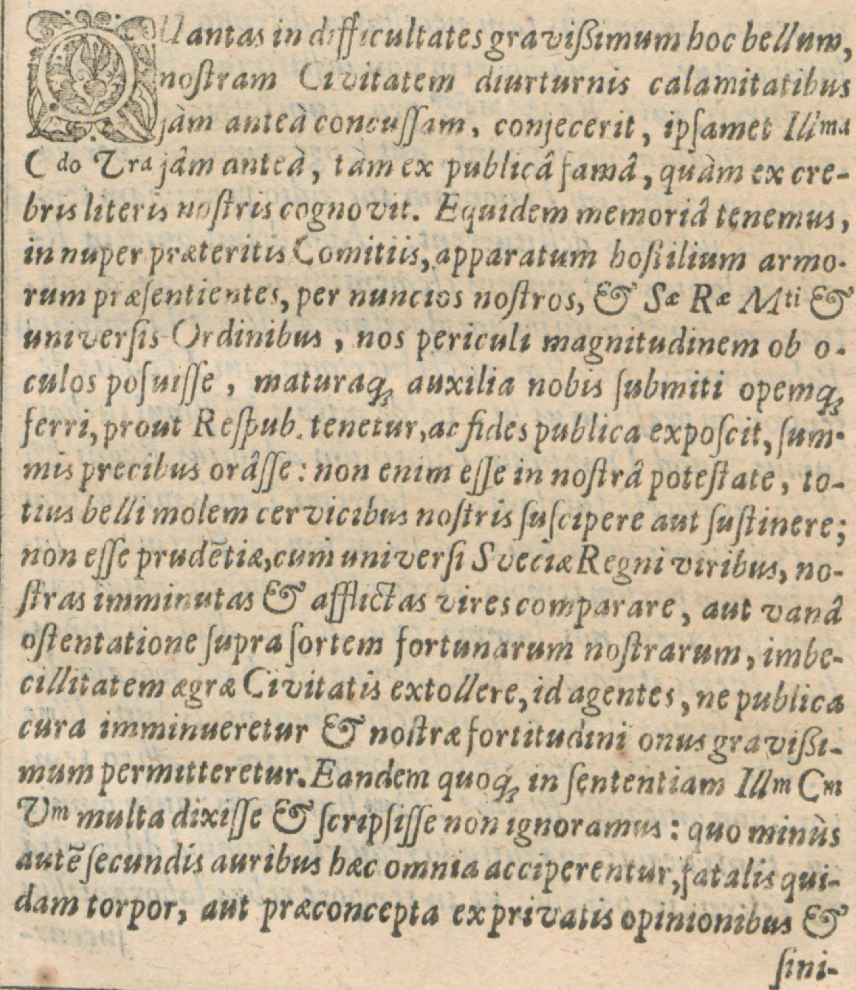 QUantas in difficultates gravißimum hoc bellum,
nostram Civitatem diurturnis calamitatibus
jàm anteà concussam, conjecerit, ipsamet Illma
C do Vra jâm anteà, tàm ex publicâ famâ, quàm ex cre-
bris literis nostris cognovit. Equidem memoriâ tenemus,
in nuper præteritis Comitiis, apparatum hostilium armo-
rum præsentientes, per nuncios nostros, & Sæ Ræ Mti &
universis Ordinibus, nos periculi magnitudinem ob o-
culos posuisse, maturaq; auxilia nobis submiti opemq;
ferri, prout Respub. tenetur, ac fides publica exposcit, sum-
mis precibus orâsse: non enim esse in nostrâ potestate, to-
tius belli molem cervicibus nostris suscipere aut sustinere;
non esse prudẽtiæ, cum universi Sveciæ Regni viribus, no-
stras imminutas & afflictas vires comparare, aut vanâ
ostentatione supra sortem fortunarum nostrarum, imbe-
cillitatem ægræ Civitatis extollere, id agentes, ne publica
cura imminueretur & nostræ fortitudini onus gravißi-
mum permitteretur. Eandem quoq; in sententiam Illm Cm
Vm multa dixisse & scripsisse non ignoramus: quo minùs
autẽ secundis auribus hæc omnia acciperentur, fatalis qui-
dam torpor, aut præconcepta ex privatis opinionibus &
sini-